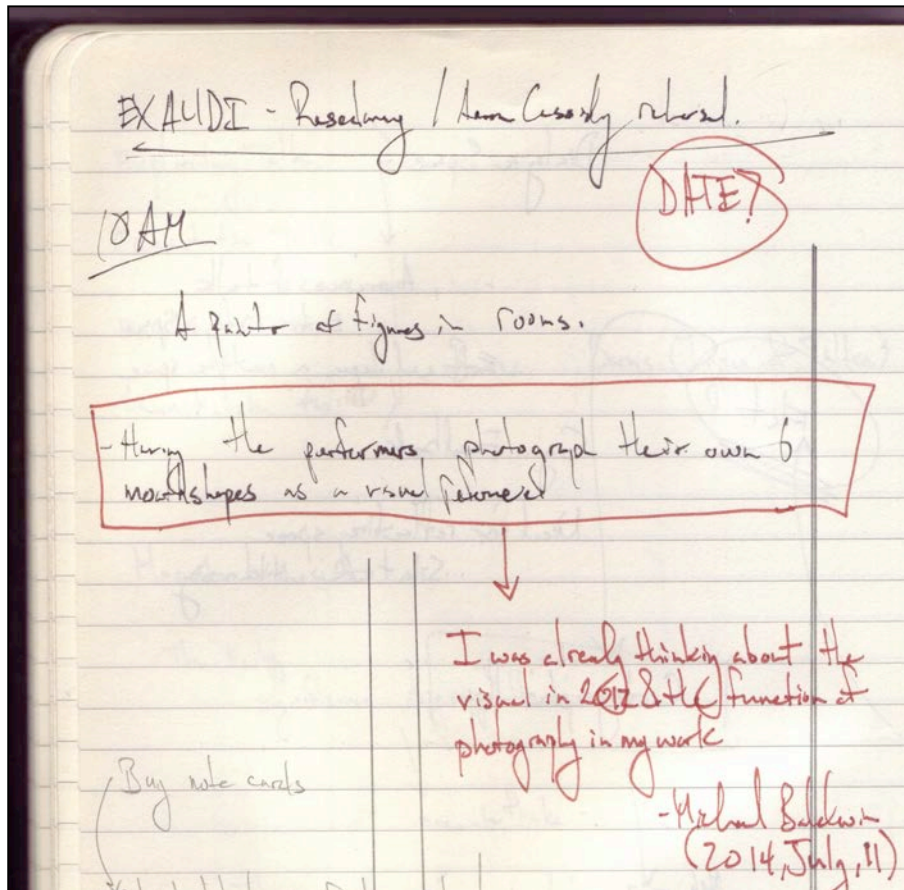 EXAUDI - Rosedary / Aaron Cassidy rehersal.
DATE?
10 AM
A painter of figures in rooms.
- Having the performers photograph their own 6
mouthshapes as a visual
I was already thinking about the
visual in 2012 & the function of
photography in my work
Buy note cards
- Michael Baldwin
(2014, July, 11)